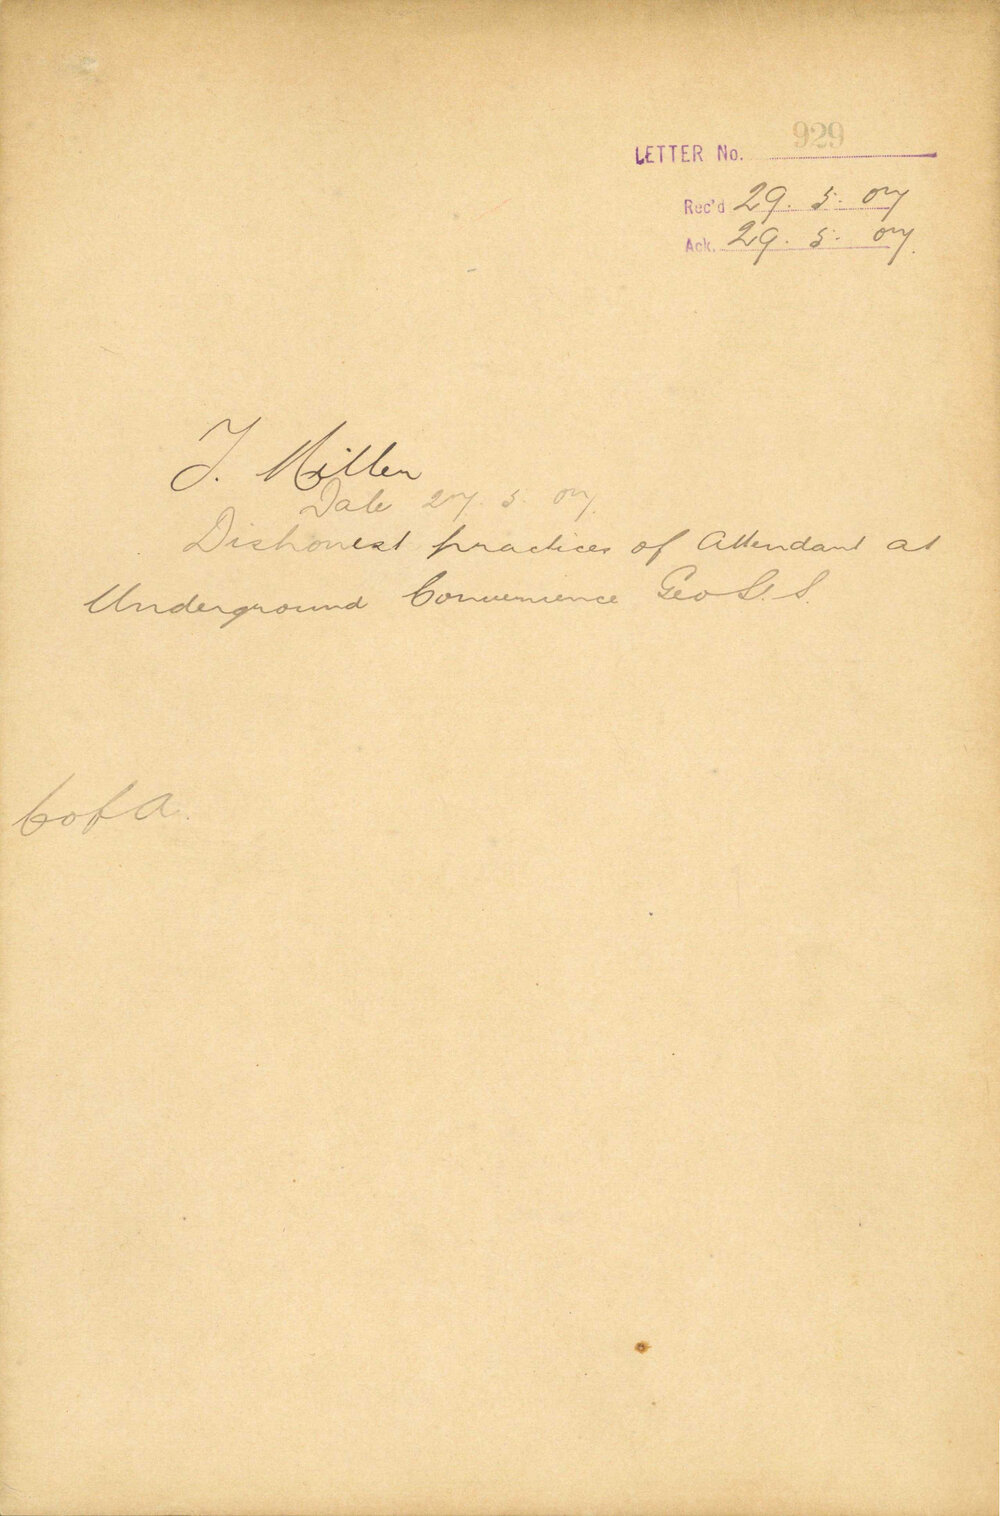 LETTER No. 929
Rec'd 29. 5. 07
Ack. 29. 5. 07.
Date 27. 5. 07.
Dishonest practices of Attendant at
Underground Convenience Geo S. S.
C of A.